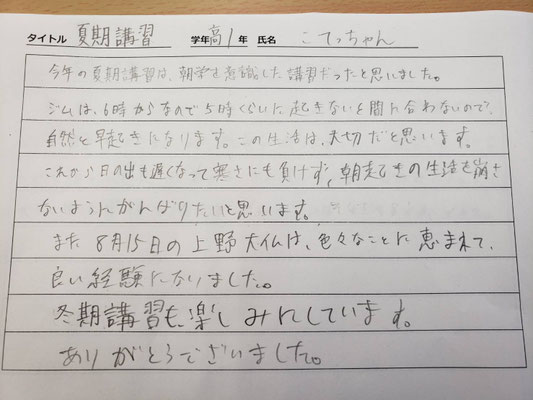 タイトル 夏期講習 学年 高1年 氏名 こてっちゃん
今年の夏期講習は、朝学を意識した講習だったと思いました。
ジムは、6時からなので5時くらいに起きないと間に合わないので、
自然と早起きになります。この生活は、大切だと思います。
これから日の出も遅くなって寒さにも負けず、朝起きの生活を崩さ
ないようにがんばりたいと思います。
また8月15日の上野大仏は、色々なことに恵まれて、
良い経験になりました。
冬期講習も楽しみにしています。
ありがとうございました。